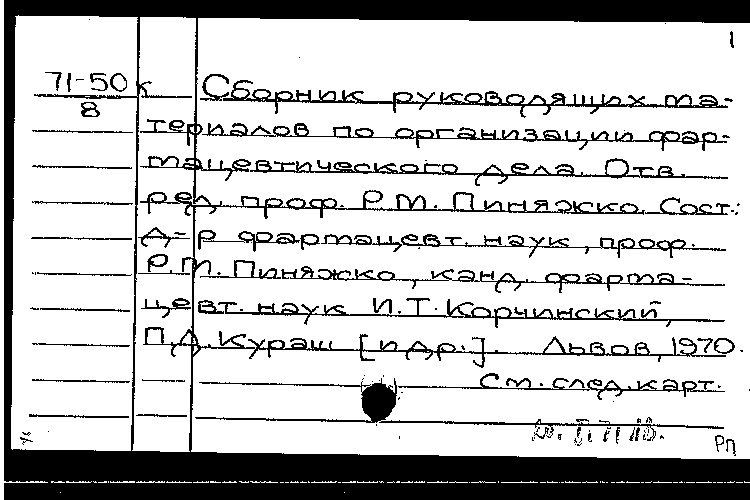 1
71-50 к Сборник руководящих ма-
8
териалов по организации фар-
мацевтического дела. Отв.
ред. проф. Р.М. Пиняжко. Сост.:
д-р фармацевт. наук, проф.
Р.М. Пиняжко, канд. фарма-
цевт. наук И.Т. Корчинский,
П.Д. Кураш [и др.]. Львов, 1970.
См. след. карт.
Рп